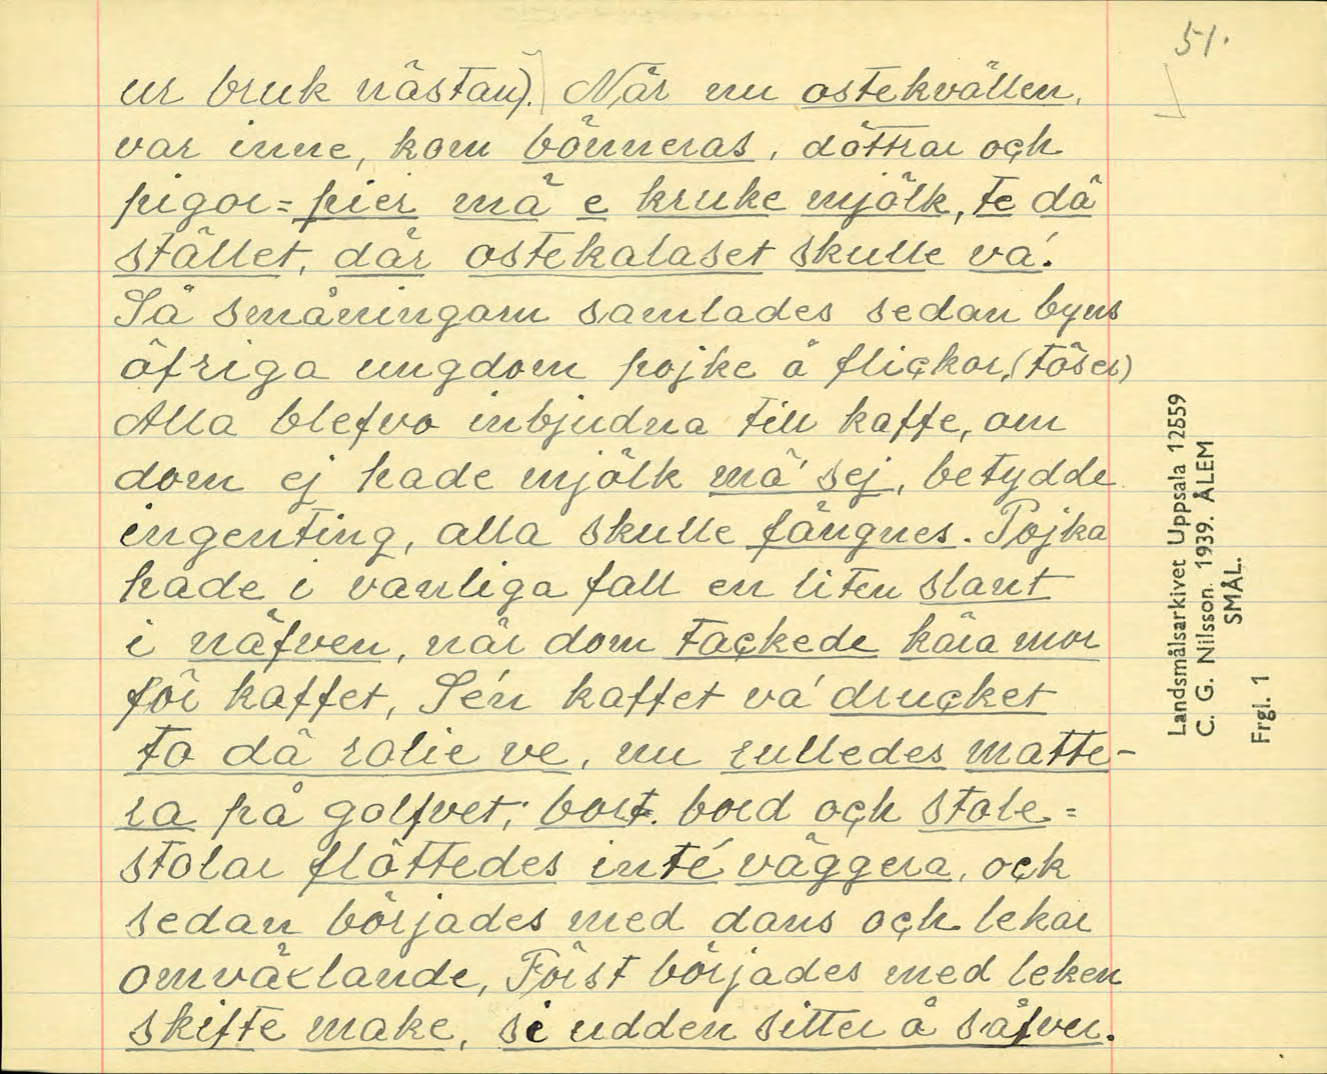 51.
ur bruk nästan). När nu ostekvällen,
var inne, kom bönneras, döttrar och
pigor = pier mä e kruke mjölk, te dä
stället, där ostekalaset skulle va'.
Så småningom samlades sedan byns
öfriga ungdom pojke å flickor, (töser)
Alla blefvo inbjudna till kaffe, om
dom ej hade mjölk mä' sej, betydde
ingenting, alla skulle fängnes. Pojka
hade i vanliga fall en liten slant
i näfven, när dom tackede kära mor
för kaffet, Se'n kaffet va' drucket
to dä rolie ve, nu rulledes matte-
ra på golfvet; bort. bord och stole =
stolar flöttedes inté väggera, ock
sedan börjades med dans och lekar
omväxlande, Först börjades med leken
skifte make, si udden sitter å såfver.
Landsmålsarkivet Uppsala 12559
C. G. Nilsson. 1939. ÅLEM
SMÅL.
Frgl. 1